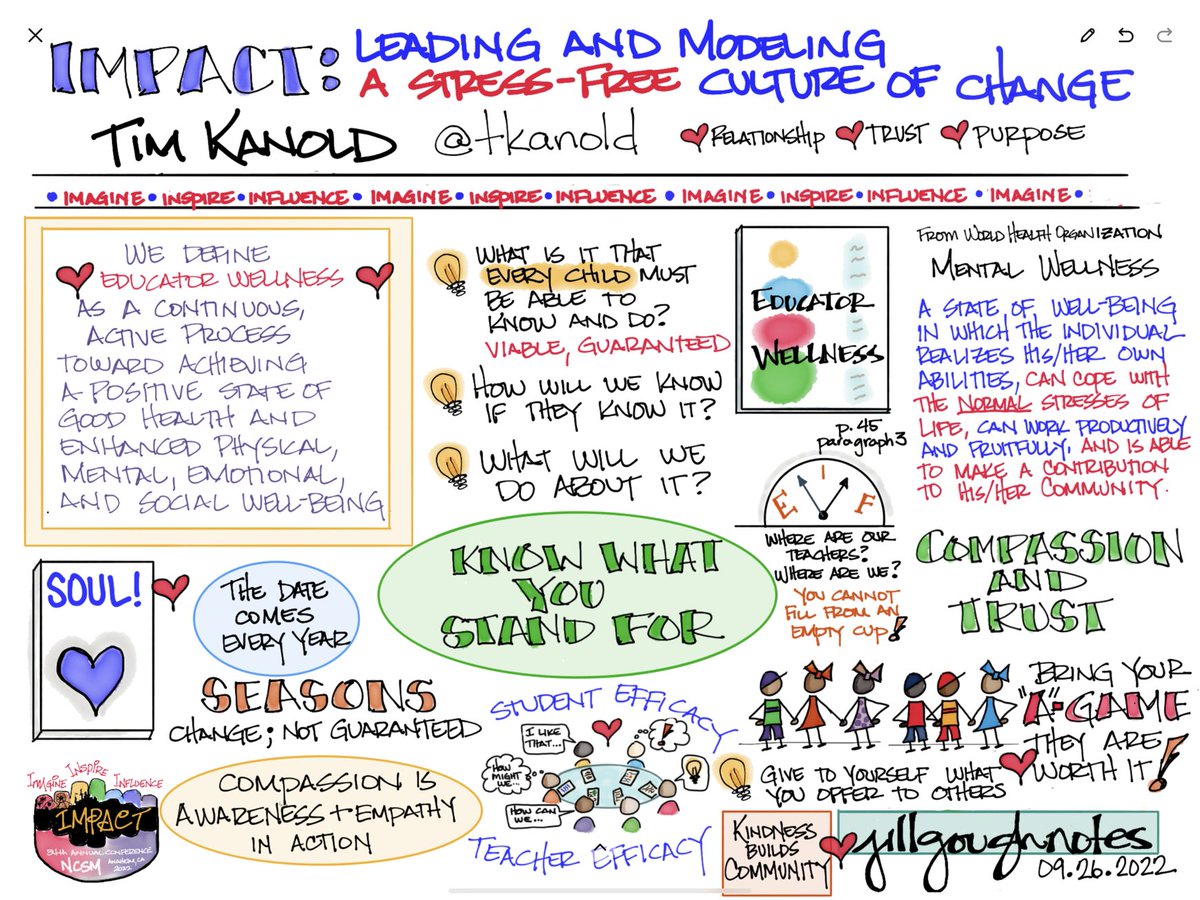 IMPACT: LEADING AND MODELING
A STRESS-FREE CULTURE OF CHANGE
TIM KANOLD @tkanold RELATIONSHIP TRUST PURPOSE
• IMAGINE • INSPIRE • INFLUENCE • IMAGINE • INSPIRE • INFLUENCE • IMAGINE • INSPIRE • INFLUENCE • IMAGINE •
WE DEFINE
EDUCATOR WELLNESS
AS A CONTINUOUS,
ACTIVE PROCESS
TOWARD ACHIEVING
A POSITIVE STATE OF
GOOD HEALTH AND
ENHANCED PHYSICAL,
MENTAL, EMOTIONAL,
AND SOCIAL WELL-BEING
WHAT IS IT THAT
EVERY CHILD MUST
BE ABLE TO
KNOW AND DO?
VIABLE, GUARANTEED
HOW WILL WE KNOW
IF THEY KNOW IT?
WHAT WILL WE
DO ABOUT IT?
EDUCATOR
WELLNESS
p. 45
paragraph 3
FROM WORLD HEALTH ORGANIZATION
MENTAL WELLNESS
A STATE OF WELL-BEING
IN WHICH THE INDIVIDUAL
REALIZES HIS/HER OWN
ABILITIES, CAN COPE WITH
THE NORMAL STRESSES OF
LIFE, CAN WORK PRODUCTIVELY
AND FRUITFULLY, AND IS ABLE
TO MAKE A CONTRIBUTION
TO HIS/HER COMMUNITY.
E F
WHERE ARE OUR
TEACHERS?
WHERE ARE WE?
YOU CANNOT
FILL FROM AN
EMPTY CUP!
COMPASSION
AND
TRUST
SOUL!
THE DATE
COMES
EVERY YEAR
KNOW WHAT
YOU
STAND FOR
SEASONS
CHANGE; NOT GUARANTEED
STUDENT EFFICACY
I LIKE
THAT...
HOW
MIGHT
WE...
HOW CAN
WE...
TEACHER EFFICACY
BRING YOUR
"A"-GAME
THEY ARE
WORTH IT!
GIVE TO YOURSELF WHAT
YOU OFFER TO OTHERS
IMAGINE INSPIRE INFLUENCE
IMPACT
54th ANNUAL CONFERENCE
NCSM ANAHEIM, CA
2022
COMPASSION IS
AWARENESS + EMPATHY
IN ACTION
KINDNESS
BUILDS
COMMUNITY
jillgoughnotes
09.26.2022